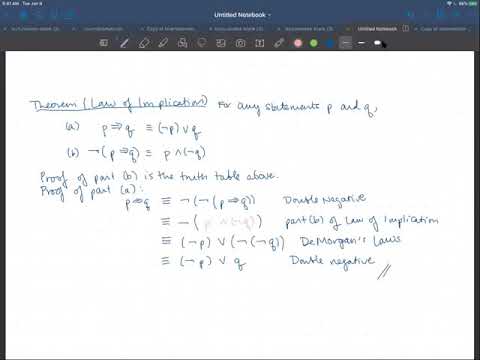 9:41 AM Tue Jan 9
Untitled Notebook
Untitled Notebook
Theorem (Law of Implication) For any statements p and q,
(a) p ⇒ q ≡ (¬p) ∨ q
(b) ¬(p ⇒ q) ≡ p ∧ (¬q)
Proof of part (b) is the truth table above.
Proof of part (a):
p ⇒ q ≡ ¬(¬(p ⇒ q)) Double Negative
≡ ¬(p ∧ (¬q)) part (b) of Law of Implication
≡ (¬p) ∨ (¬(¬q)) DeMorgan's Laws
≡ (¬p) ∨ q Double negative //